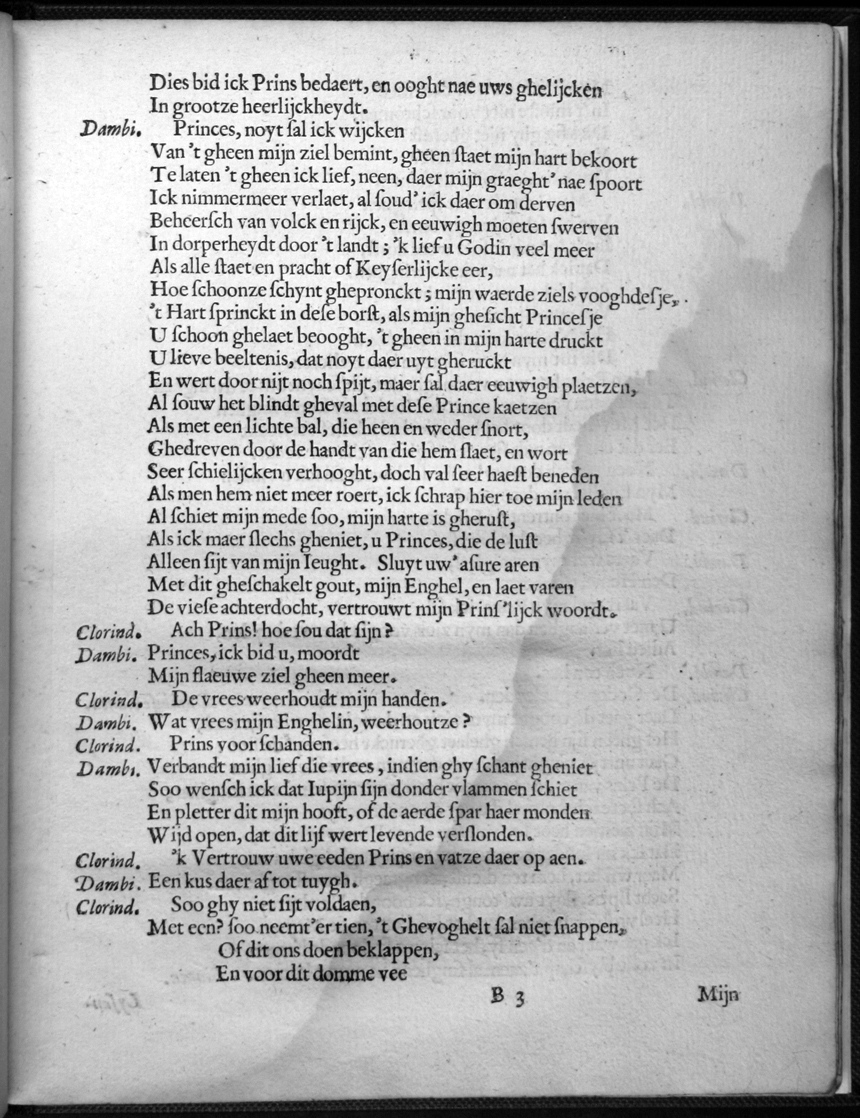 Dies bid ick Prins bedaert, en ooght nae uws ghelijcken
In grootze heerlijckheydt.
Dambi. Princes, noyt ſal ick wijcken
Van 't gheen mijn ziel bemint, gheen ſtaet mijn hart bekoort
Te laten 't gheen ick lief, neen, daer mijn graeght' nae ſpoort
Ick nimmermeer verlaet, al ſoud' ick daer om derven
Beheerſch van volck en rijck, en eeuwigh moeten ſwerven
In dorperheydt door 't landt; 'k lief u Godin veel meer
Als alle ſtaet en pracht of Keyſerlijcke eer,
Hoe ſchoonze ſchynt ghepronckt; mijn waerde ziels vooghdeſje,
't Hart ſprinckt in deſe borſt, als mijn gheſicht Princeſje
U ſchoon ghelaet beooght, 't gheen in mijn harte druckt
U lieve beeltenis, dat noyt daer uyt gheruckt
En wert door nijt noch ſpijt, maer ſal daer eeuwigh plaetzen,
Al ſouw het blindt gheval met deſe Prince kaetzen
Als met een lichte bal, die heen en weder ſnort,
Ghedreven door de handt van die hem ſlaet, en wort
Seer ſchielijcken verhooght, doch val ſeer haeſt beneden
Als men hem niet meer roert, ick ſchrap hier toe mijn leden
Al ſchiet mijn mede ſoo, mijn harte is gheruſt,
Als ick maer ſlechs gheniet, u Princes, die de luſt
Alleen ſijt van mijn Ieught. Sluyt uw' aſure aren
Met dit gheſchakelt gout, mijn Enghel, en laet varen
De vieſe achterdocht, vertrouwt mijn Prinſ'lijck woordt.
Clorind. Ach Prins! hoe ſou dat ſijn?
Dambi. Princes, ick bid u, moordt
Mijn flaeuwe ziel gheen meer.
Clorind. De vrees weerhoudt mijn handen.
Dambi. Wat vrees mijn Enghelin, weerhoutze?
Clorind. Prins voor ſchanden.
Dambi. Verbandt mijn lief die vrees, indien ghy ſchant gheniet
Soo wenſch ick dat Iupijn ſijn donder vlammen ſchiet
En pletter dit mijn hooft, of de aerde ſpar haer monden
Wijd open, dat dit lijf wert levende verſlonden.
Clorind. 'k Vertrouw uwe eeden Prins en vatze daer op aen.
Dambi. Een kus daer af tot tuygh.
Clorind. Soo ghy niet ſijt voldaen,
Met een? ſoo neemt'er tien, 't Ghevoghelt ſal niet ſnappen,
Of dit ons doen beklappen,
En voor dit domme vee
B 3 Mijn